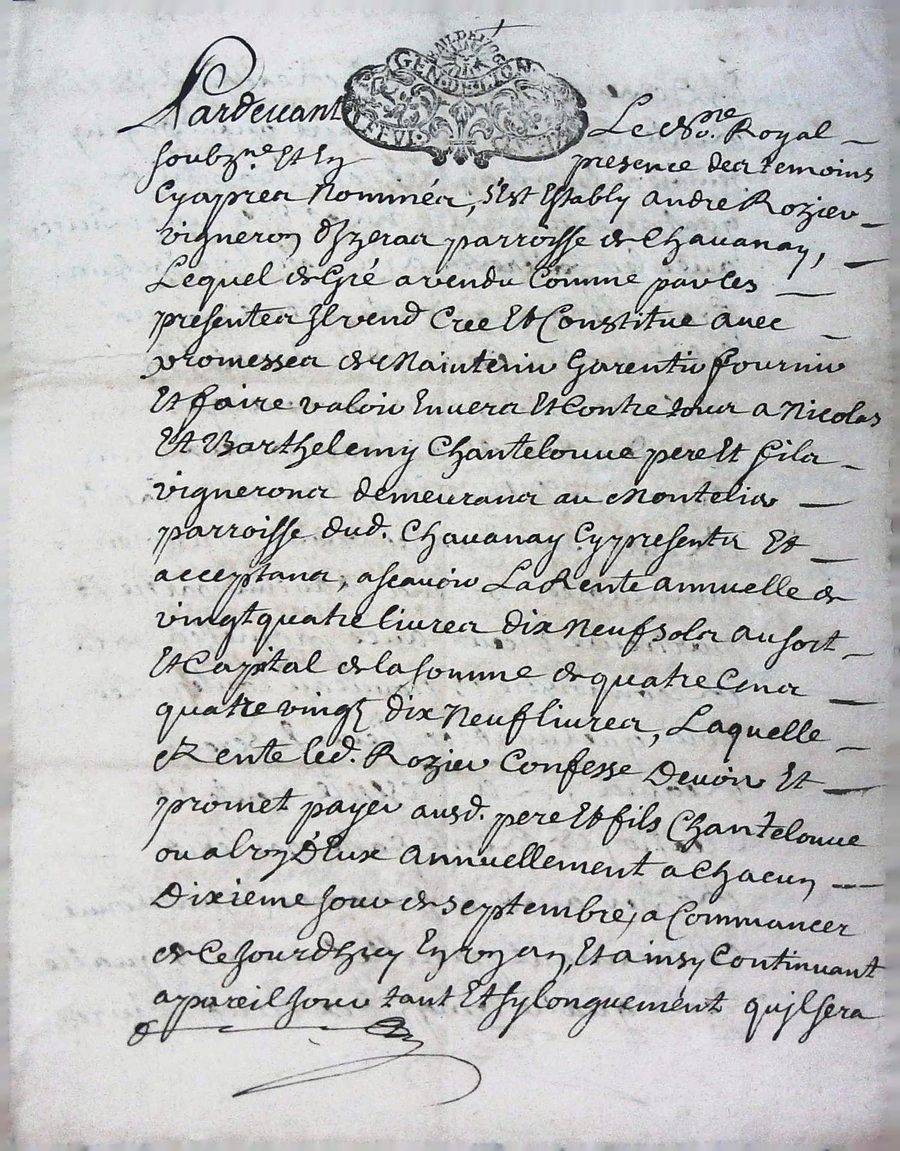 GEN. DE LION
Pardevant Le No.re Royal
soubz.né Et En presence des temoins
Cyapres Nommés, s'Est Estably andré Rozier
vigneron d'Izeras parroisse de Chavanay,
Lequel de Gré a vendu Comme par ces
presentes Il vend Cree Et Constitue avec
promesses de Maintenir Garentir fournir
Et faire valoir Envers Et Contre tous a Nicolas
Et Barthelemy Chantelouve pere Et fils
vignerons demeurans au Montelier
parroisse dud. Chavanay Cy presents Et
acceptans, ascavoir La Rente annuelle de
vingt quatre livres dix Neuf sols au sort
Et Capital de la somme de quatre Cens
quatre vingt dix Neuf livres, Laquelle
Rente led. Rozier Confesse Devoir Et
promet payer ausd. pere Et fils Chantelouve
ou a l'un D'Eux annuellement a Chacun
Dixieme jour de septembre, a Commancer
de Ce jourd'huy En un an, Et ainsy Continuant
a pareil jour tant Et sy longuement qu'il sera